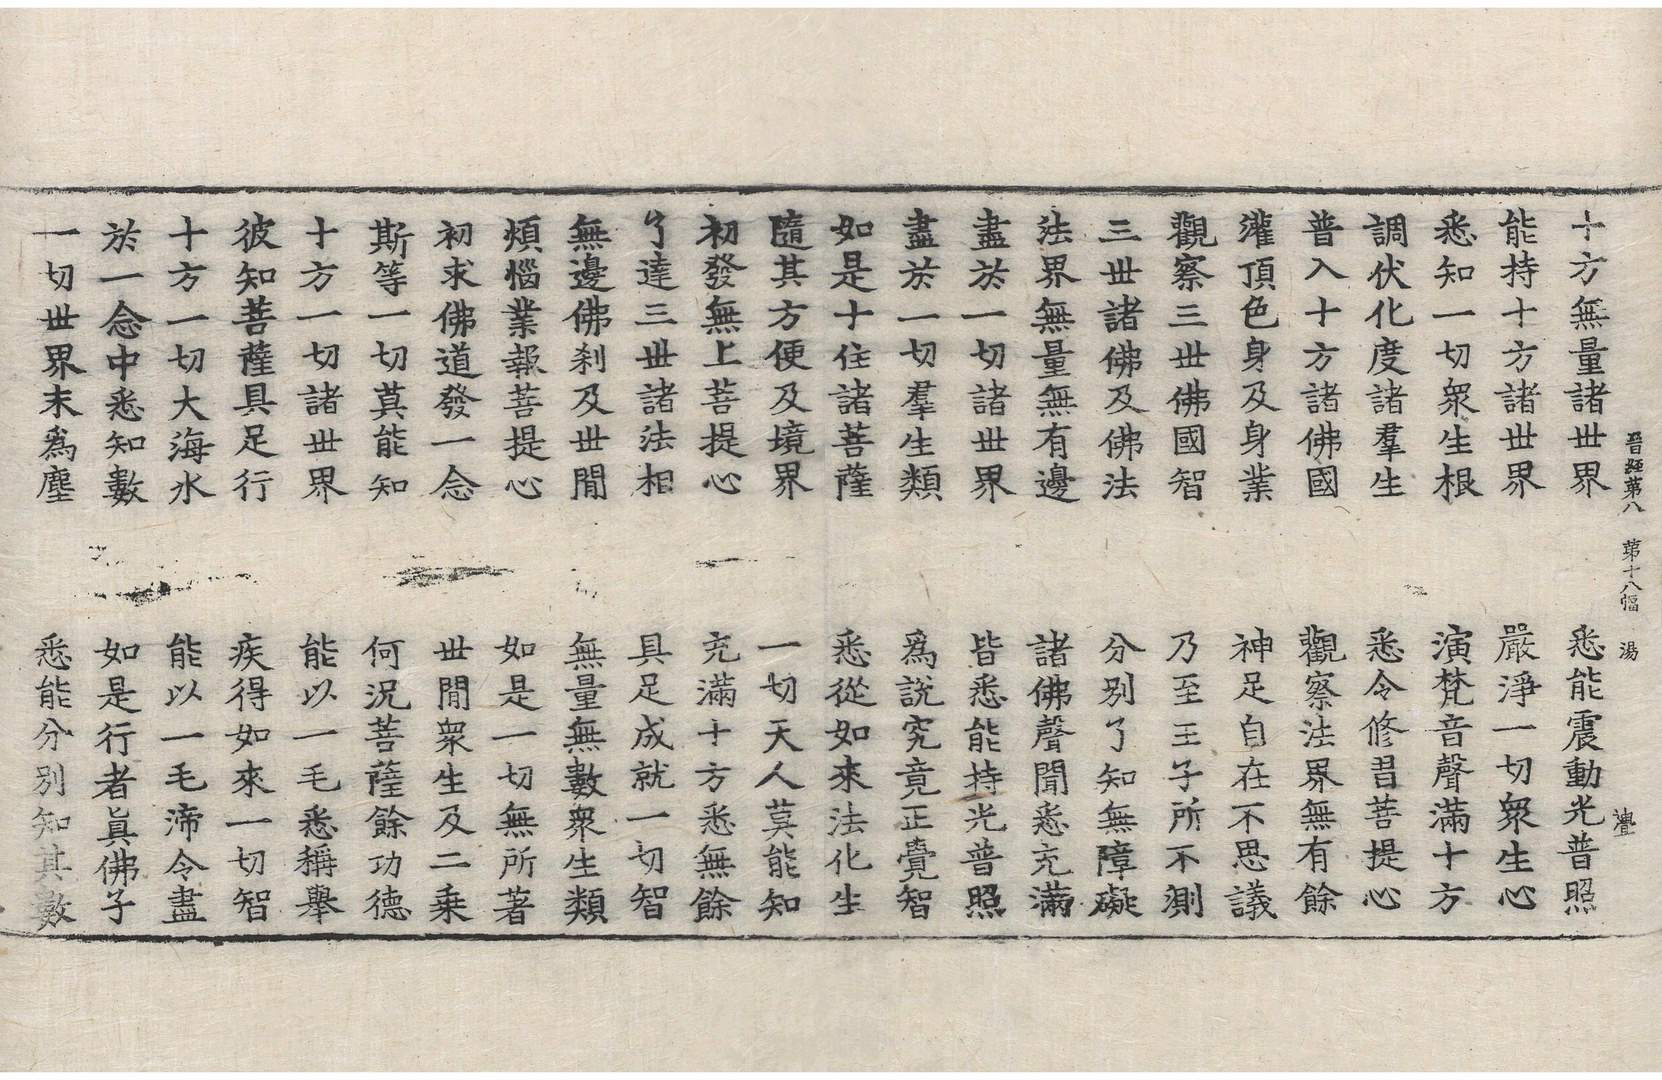 晉經第八　第十八幅　湯
十方無量諸世界　悉能震動光普照
能持十方諸世界　嚴淨一切衆生心
悉知一切衆生根　演梵音聲滿十方
調伏化度諸羣生　悉令修習菩提心
普入十方諸佛國　觀察法界無有餘
灌頂色身及身業　神足自在不思議
觀察三世佛國智　乃至王子所不測
三世諸佛及佛法　分別了知無障礙
法界無量無有邊　諸佛聲聞悉充滿
盡於一切諸世界　皆悉能持光普照
盡於一切羣生類　爲說究竟正覺智
如是十住諸菩薩　悉從如來法化生
隨其方便及境界　一切天人莫能知
初發無上菩提心　充滿十方悉無餘
了達三世諸法相　具足成就一切智
無邊佛刹及世閒　無量無數衆生類
煩惱業報菩提心　如是一切無所著
初求佛道發一念　世閒衆生及二乘
斯等一切莫能知　何況菩薩餘功德
十方一切諸世界　能以一毛悉稱舉
彼知菩薩具足行　疾得如來一切智
十方一切大海水　能以一毛渧令盡
於一念中悉知數　如是行者眞佛子
一切世界末爲塵　悉能分別知其數